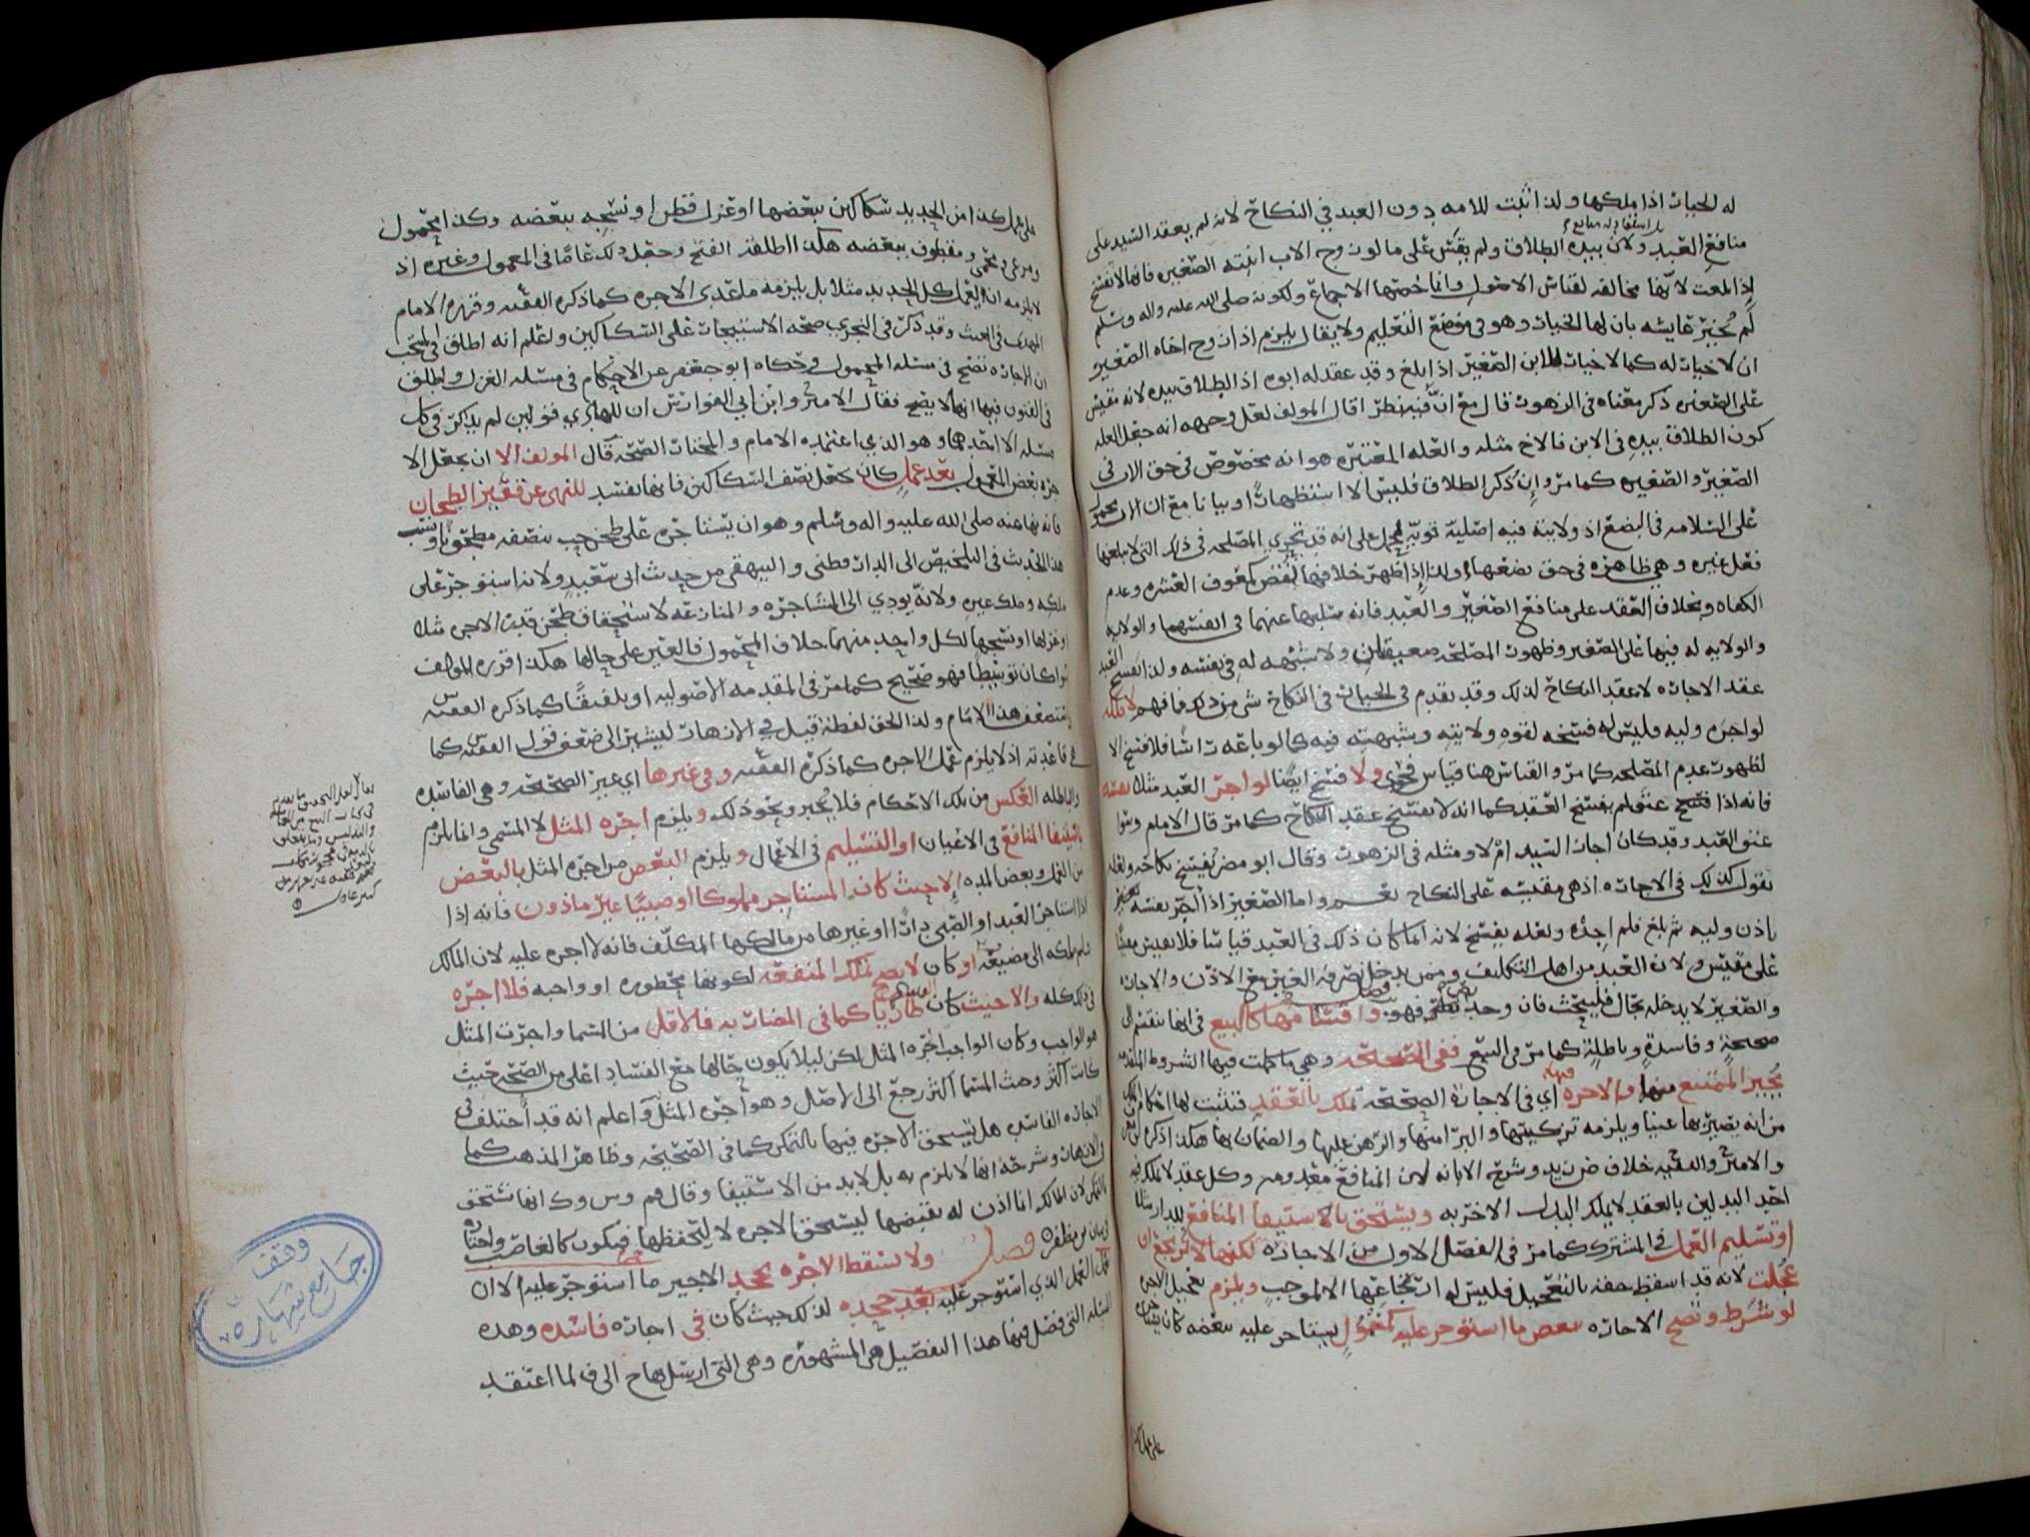 له الخيار اذا ملكها ولذا اثبت للامه دون العبد في النكاح لانه لم يعقد السيد على
منافع العبد ولان بيده الطلاق ولم يقس على ما لو زوج الاب ابنته الصغيره فانها لا تفسخ
اذا بلغت لانها مخالفه لقياس الاصول وانما خصها الاجماع ولكونه صلى الله عليه واله وسلم
لم يخبر عايشه بان لها الخيار وهو في موضع التعليم ولا يقال يلزم اذا زوج اخاه الصغير
ان لا خيار له كما لا خيار للابن الصغير اذا بلغ وقد عقد له ابوه اذ الطلاق بيده لانه مقيس
على الصغيره ذكر معناه في الزهور قال مع ان فيه نظرا قال المولف لعل وجهه انه جعل العله
كون الطلاق بيده في الابن فالاخ مثله والعله المعتبره هو انه مخصوص في حق الاب في
الصغير والصغيره كما مر وان ذكر الطلاق فليس الا استظهارا او بيانا مع ان الاب محمول
على السلامه في البضع اذ ولايته فيه اصليه قويه على انه قد تجري المصلحه في ذلك التي لا يبلغها
فعل غيره وهي ظاهره في حق بضعها ولذا اذا ظهر خلافها نقض كمعوق العشره وعدم
الكفاه وبخلاف العقد على منافع الصغير والعبد فانه سلبها عنهما في انفسهما والولايه
والولايه له فيها على الصغير وظهور المصلحه ولا شبهه له في نفسه ولذا انفسخ العبد
عقد الاجاره لا عقد النكاح لذلك وقد تقدم في الخيار في النكاح شي من ذلك فافهم لا ملكه
لو اجره وليه فليس له فسخه لقوه ولايته وشبهته فيه كما لو باعه دارا شا فلا فسخ الا
لظهور عدم المصلحه كما مر والقياس هنا قياس فحوى ولا فسخ ايضا لو اجر العبد مثلا نفسه
فانه اذا عتق لم يفسخ العقد كما انه لا يفسخ عقد النكاح كما مر قال الامام وسوا
عتق العبد وقد كان اجاز السيد ام لا ومثله في الزهور وقال ابو مضر يفسخ نكاحه ولعله
يقول كذلك في الاجاره اذ هي مقيسه على النكاح نعم واما الصغير اذا اجر نفسه
باذن وليه ثم بلغ فلم اجده ولعله يفسخ لانه انما كان ذلك في العبد قياسا فلا يقيس مقيسا
على مقيس ولان العبد من اهل التكليف وممن يدخل تصرفه الغير مع الاذن والاجازه
والصغير لا يدخله بحال فليبحث فان وجد نص فهو فصل واقسامها كالبيع في انها تنقسم الى
صحيحه وفاسده وباطله كما مر في البيع ففي الصحيحه وهي ما كملت فيها الشروط المتقدمه
يجبر الممتنع منها والاجره فيها اي في الاجاره الصحيحه تملك بالعقد فتثبت لها احكام الملك
من انه يصير بها غنيا ويلزمه تزكيتها والبرا منها والرهن عليها والضمان بها هكذا ذكره
والامير والفقيه خلاف ض زيد وشرح الابانه لان المنافع معدومه وكل عقد لا يملك فيه
احد البدلين بالعقد لا يملك البدل الاخر به ويستحق بالاستيفا المنافع للدار مثلا
او تسليم العمل في المشترك كما مر في الفصل الاول من الاجاره لكنها لا ترجع ان
عجلت لانه قد اسقط حقه بالتعجيل فليس له ارتجاعها الا لموجب ويلزم تعجيل الاجره
لو شرط وتصح الاجاره ببعض ما استوجر عليه كمعمول يستاجر عليه ببعضه كان يستاجره
على عمل كذا
على عمل كذا من الحديد سكاكين ببعضها او غزل قطن او نسجه ببعضه وكذا محمول
ومرعي ومقطوف ببعضه هكذا اطلقه الفتح وجعل ذلك عاما في المعمول وغيره اذ
لا يلزمه ان يعمل كل الحديد مثلا بل يلزمه ما عدى الاجره كما ذكره الفقيه وقرره الامام
المهدي في الغيث وقد ذكر في التحرير صحه الاستيجار على السكاكين واعلم انه اطلق في المنتخب
ان الاجاره تصح في مسئله المحمول وحكاه ابو جعفر عن الاحكام في مسئله الغزل واطلق
في الفنون فيها انها لا يصح فقال الامير وابن ابي الفوارس ان للهادي قولين لم يذكر في كل
مسئله الا احدهما وهو الذي اعتمده الامام والمختار الصحه قال المولف الا ان يجعل الا
جره بعض المعمول بعد عمله كان يجعل نصف السكاكين فانها تفسد للنهي عن قفيز الطحان
فانه نها عنه صلى الله عليه واله وسلم وهو ان يستاجره على طحن حب بنصفه مطحونا ونسب
هذا الحديث في التلخيص الى الدارقطني والبيهقي من حديث ابي سعيد ولانه استوجر على
ملكه وملك غيره ولانه يودي الى المشاجره والمنازعه لاستحقاق طحن قدر الاجره مثلا
او غزلها او نسجها لكل واحد منهما خلاف المحمول فالعين على حالها هكذا قرره المولف
سوا كان توسيطا فهو صحيح كما مر في المقدمه الاصوليه او تلفيقا كما ذكره الفقيه س
استضعف هذا الامام ولذا الحق لفظه قيل في الازهار ليشير الى ضعف قول الفقيه س كما
هي قاعدته اذ لا يلزم عمل الاجره كما ذكره الفقيه وفي غيرها اي غير الصحيحه وهي الفاسده
والباطله العكس من تلك الاحكام فلا يجبر ونحو ذلك ويلزم اجره المثل لا المسمى وانما يلزم
باستيفا المنافع في الاعيان او التسليم في الاعمال ويلزم البعض من اجره المثل بالبعض
من العمل وبعض المده الا حيث كان المستاجر مملوكا او صبيا غير ماذون فانه اذا
اذا استاجر العبد او الصبي دارا او غيرها من مالكها المكلف فانه لا اجره عليه لان المالك
سلم ملكه الى مضيعه او كان لا يصح تملك المنفعه لكونها محظوره او واجبه فلا اجره
في ذلك كله والا حيث كان الفساد طاريا كما في المضاربه فالاقل من المسما واجرت المثل
هو الواجب وكان الواجب اجره المثل لكن ليلا يكون حالها مع الفساد اعلى من الصحه حيث
كانت اكثر وحيث المسما اكثر رجع الى الاصل وهو اجره المثل واعلم انه قد اختلف في
الاجاره الفاسده هل يستحق الاجره فيها بالتمكن كما في الصحيحه وظاهر المذهب كما
في الازهار وشرحه انها لا يلزم به بل لا بد من الاستيفا وقال م وس وك انها تستحق
بالتمكن لان المالك انما اذن له بقبضها ليستحق الاجره لا ليحفظها فيكون كالغاصب واختاره
في بيان بن مظفر فصل ولا تسقط الاجره بجحد الاجير ما استوجر عليه الا ان
عمل العمل الذي استوجر عليه بعد جحده لذلك حيث كان في اجاره فاسده وهذه
المسئله التي فصل فيها هذا التفصيل هي المشهوره وهي التي ارسل بها ح الى ف لما اعتقد
وقف
جامع شهاره